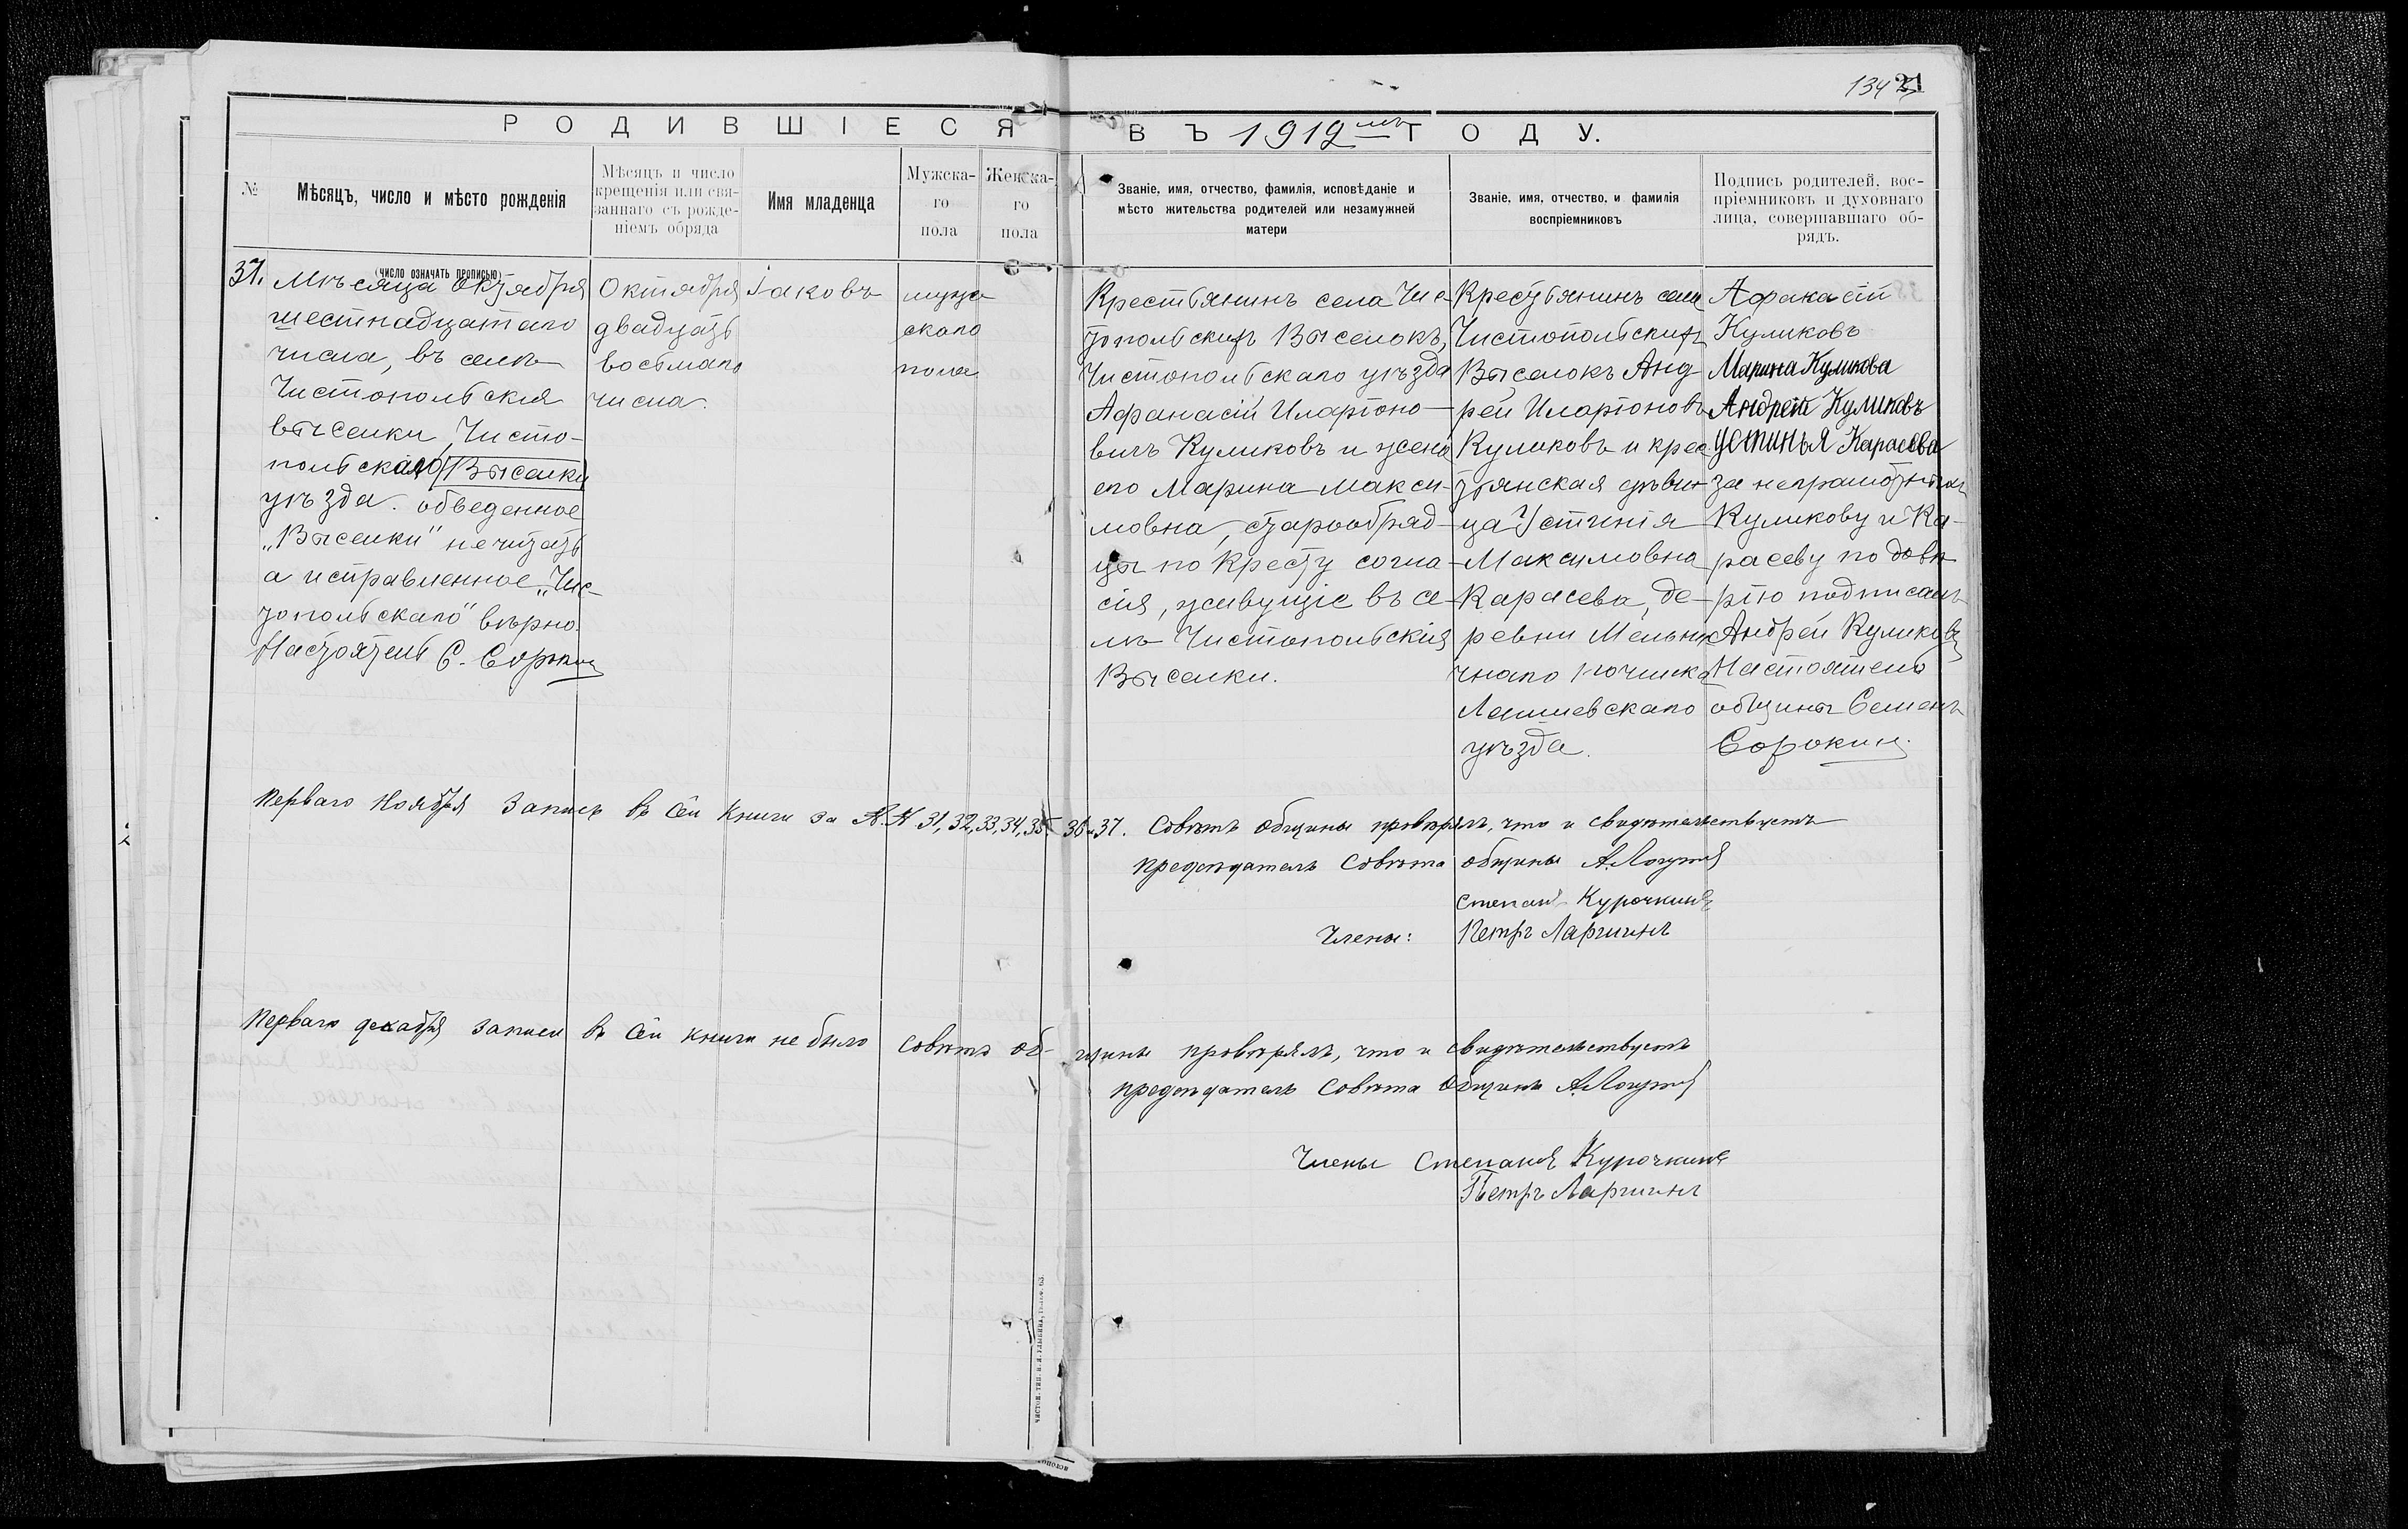 134 21
РОДИВШІЕСЯ ВЪ 1912мъ ГОДУ.
№
Мѣсяцъ, число и мѣсто рожденія
(число означать прописью)
Мѣсяцъ и число
крещенія или свя-
заннаго съ рожде-
ніемъ обряда
Имя младенца
Мужска-
го
пола
Женска-
го
пола
Званіе, имя, отчество, фамилія, исповѣданіе и
мѣсто жительства родителей или незамужней
матери
Званіе, имя, отчество, и фамилія
воспріемниковъ
Подпись родителей, вос-
пріемниковъ и духовнаго
лица, совершавшаго об-
рядъ.
37.
Мѣсяца Октября
шестнадцатаго
числа, въ селѣ
Чистопольскія
выселки, Чисто-
польскаго Выселки
уѣзда. обведенное
„Выселки" не читать
а исправленное „Чис-
топольскаго" вѣрно.
Настоятель С. Сорокин
Октября
двадцать
восьмаго
числа.
Іаковъ
муже
скаго
пола
Крестьянинъ села Чис-
топольскихъ Выселокъ,
Чистопольскаго уѣзда
Афанасій Иларіоно-
вичъ Куликовъ и жена
его Марина Макси-
мовна, старообряд-
цы по Кресту согла-
сія, живущіе въ се-
лѣ Чистопольскія
Выселки.
Крестьянинъ села
Чистопольскихъ
Выселокъ Анд-
рей Иларіоновъ
Куликовъ и крес-
тьянская дѣви-
ца Устинія
Максимовна
Карасева, де-
ревни Мельни
чнаго починка
Лаишевскаго
уѣзда.
Афанасій
Куликовъ
Марина Куликова
Андрей Куликовъ
Устинья Карасева
за неграмотных
Куликову и Ка-
расеву по довѣ-
рію подписалъ
Андрей Куликовъ
Настоятель
общины Семенъ
Сорокин.
Перваго Ноября Запись въ сей Книги за №.№ 31, 32, 33, 34, 35 36 и 37. Совѣтъ общины провѣрялъ, что и свидѣтельствуетъ
предсѣдатель Совѣта общины А.
Степанъ Курочкинъ
Члены: Петръ Ларшинъ
Перваго декабря записи въ сей книги не было Совѣтъ об- щины провѣрялъ, что и свидѣтельствуетъ
предсѣдатель Совѣта Общины А.
Члены Степанъ Курочкинъ
Петръ Ларшинъ